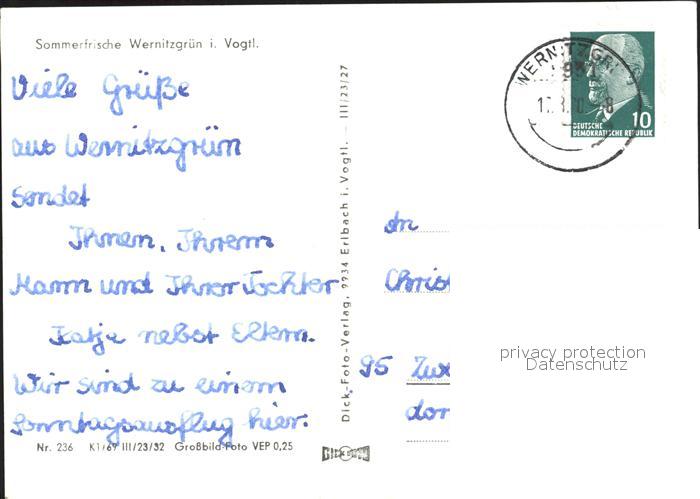 Sommerfrische Wernitzgrün i. Vogtl.
Viele Grüße
aus Wernitzgrün
sendet
Ihnen, Ihrem
Mann und Ihrer Tochter
Katja nebst Eltern.
Wir sind zu einem
Sonntagsausflug hier.
Nr. 236 K1/69 III/23/32 Großbild-Foto VEP 0,25
Dick-Foto-Verlag, 9934 Erlbach i. Vogtl. — III/23/27
WERNITZGR
10
DEUTSCHE
DEMOKRATISCHE REPUBLIK
An
Christ
95 Zwi
dor
privacy protection
Datenschutz